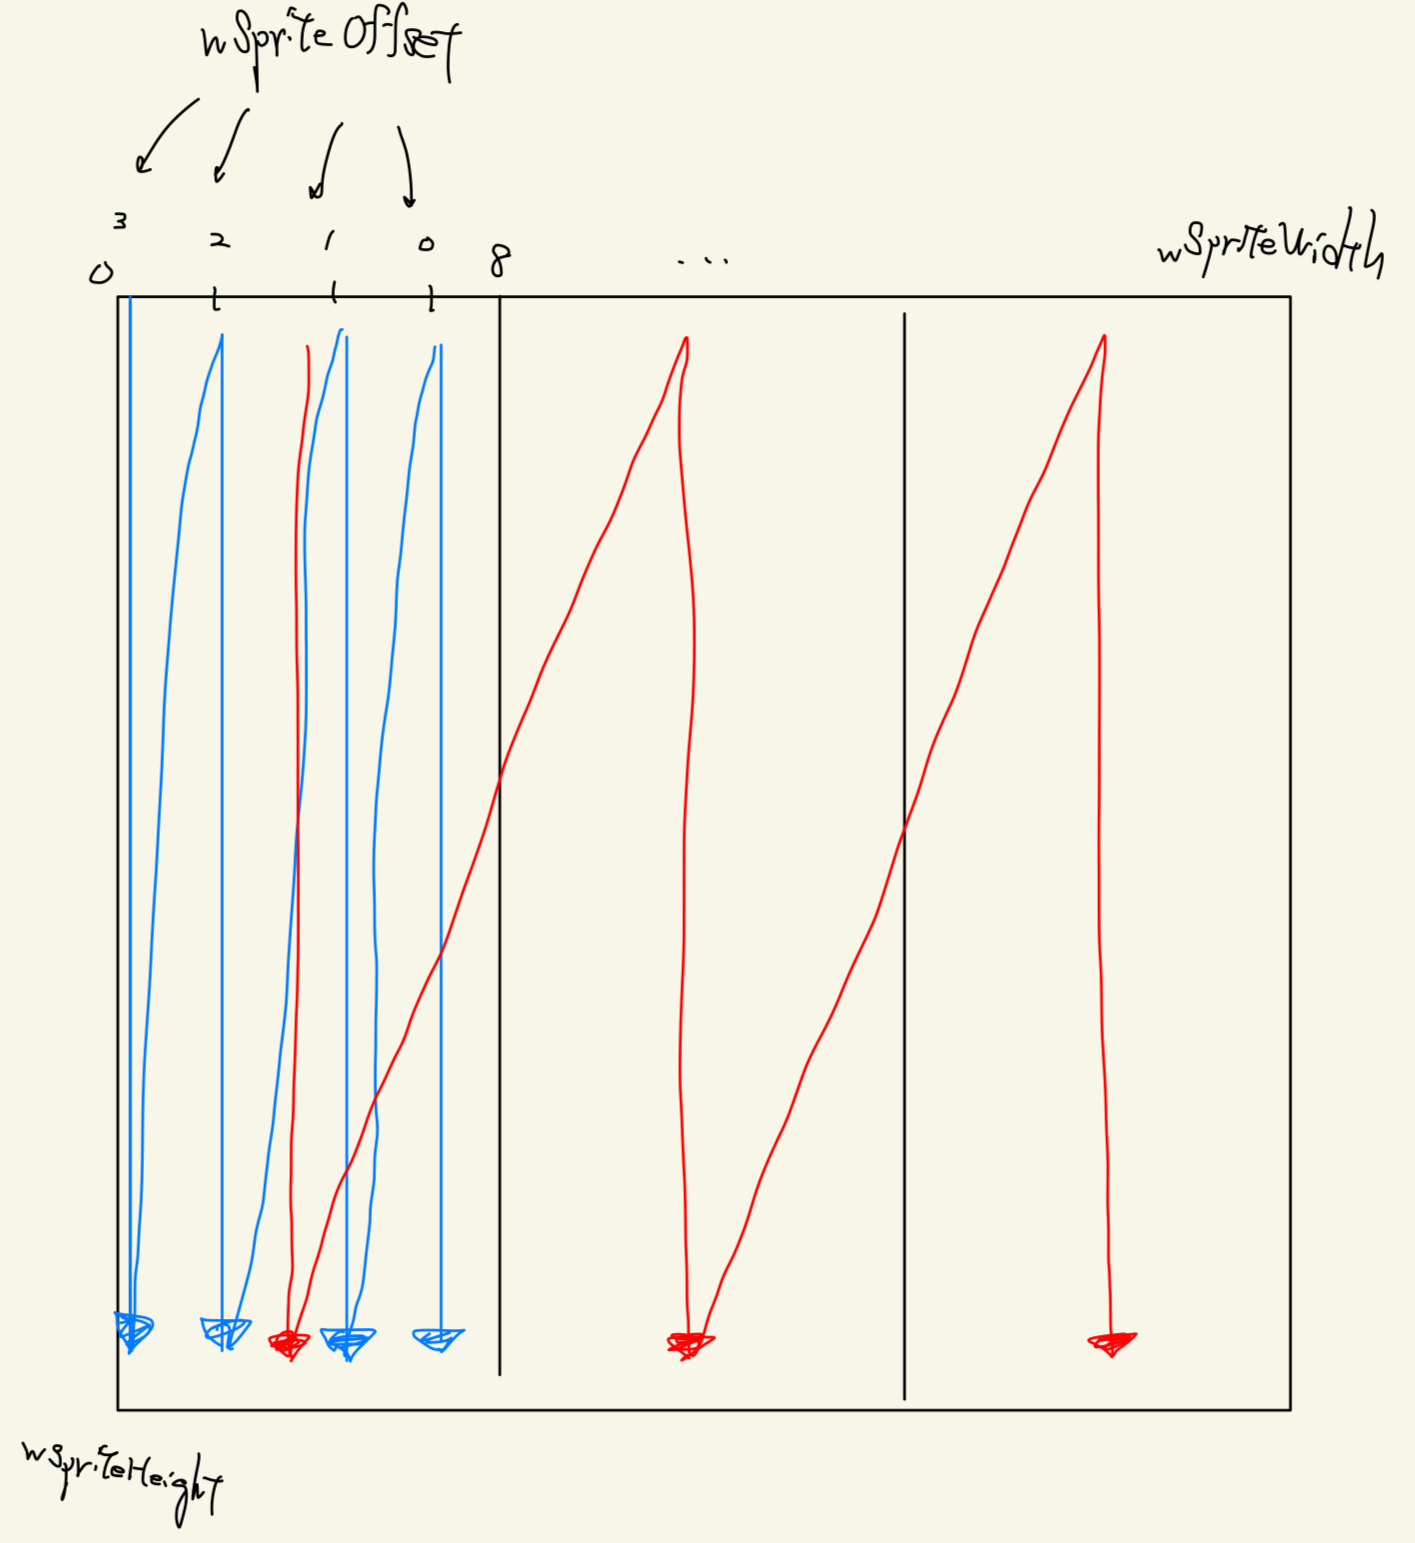 wSpriteOffset
3 2 1 0
0 8 ... wSpriteWidth
wSpriteHeight